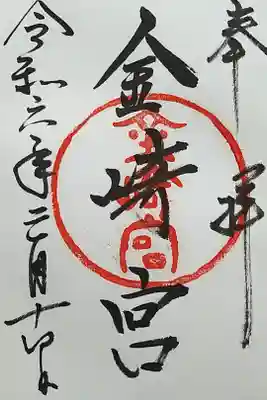 奉拝
金崎宮
令和六年二月十四日